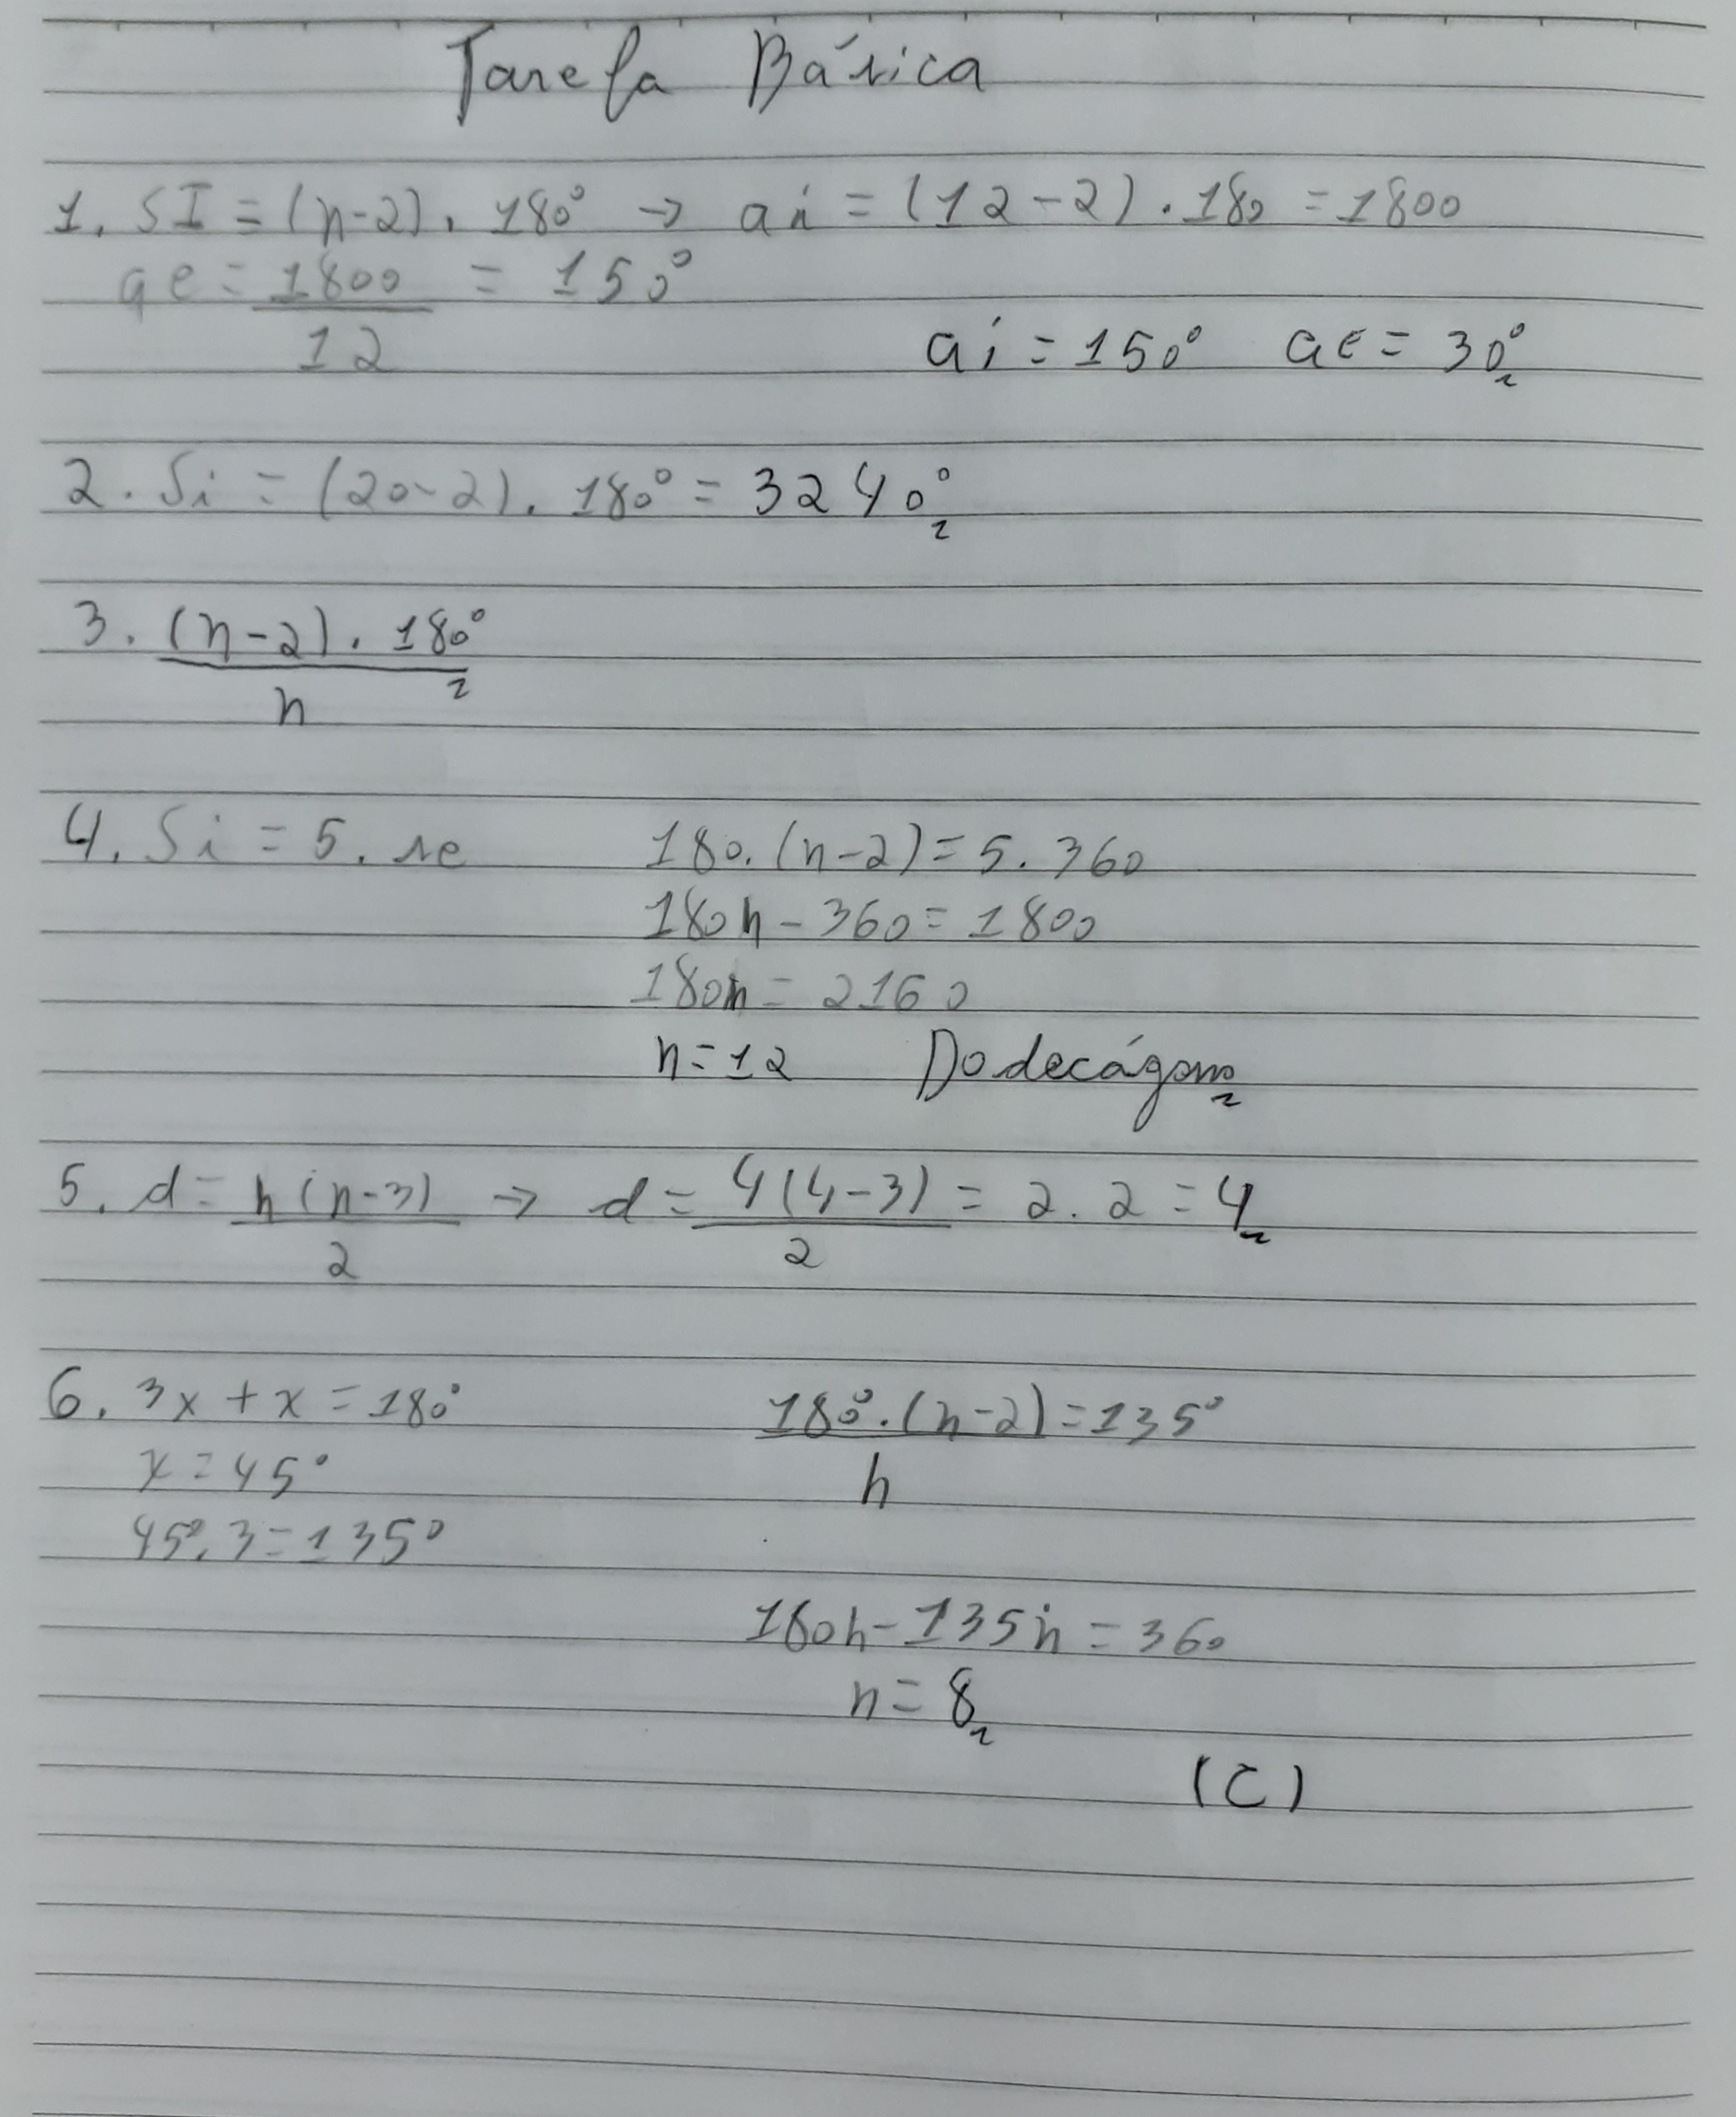 Tarefa Básica
1. SI = (n-2). 180° → ai = (12-2). 180 = 1800
ae = 1800 = 150°
12
ai = 150° ae = 30°
2. Si = (20-2). 180° = 3240°
3. (n-2). 180°
n
4. Si = 5. se
180. (n-2) = 5. 360
180n - 360 = 1800
180n = 2160
n = 12 Dodecágono
5. d = n(n-3) → d = 4(4-3) = 2. 2 = 4
2 2
6. 3x + x = 180°
x = 45°
45°. 3 = 135°
180°. (n-2) = 135°
n
180n - 135n = 360
n = 8
(C)